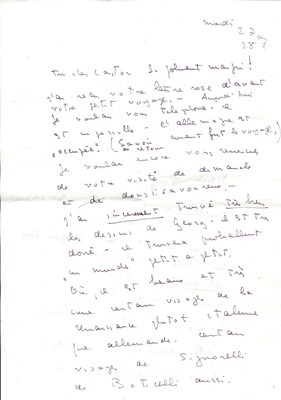 mardi
27
28?
Très cher Castor si joliment maigri!
J'ai reçu votre lettre rose d'avant
votre petit voyage. - Aujourd'hui
je voulais vous téléphoner - il
est impossible - l'allemagne est
"occupée" (Savoir
de retour
Je voulais encore vous remercier
de votre visite de dimanche
et de
J'ai sincèrement trouvé très bien
les dessins de Georg - il est très
doué - il trouvera probablement
"un monde" petit à petit.
Oui, il est beau et très
comme certain visage de la
renaissance plutôt italienne
que allemande. certain
visage de Signorelli
de Boticelli aussi.